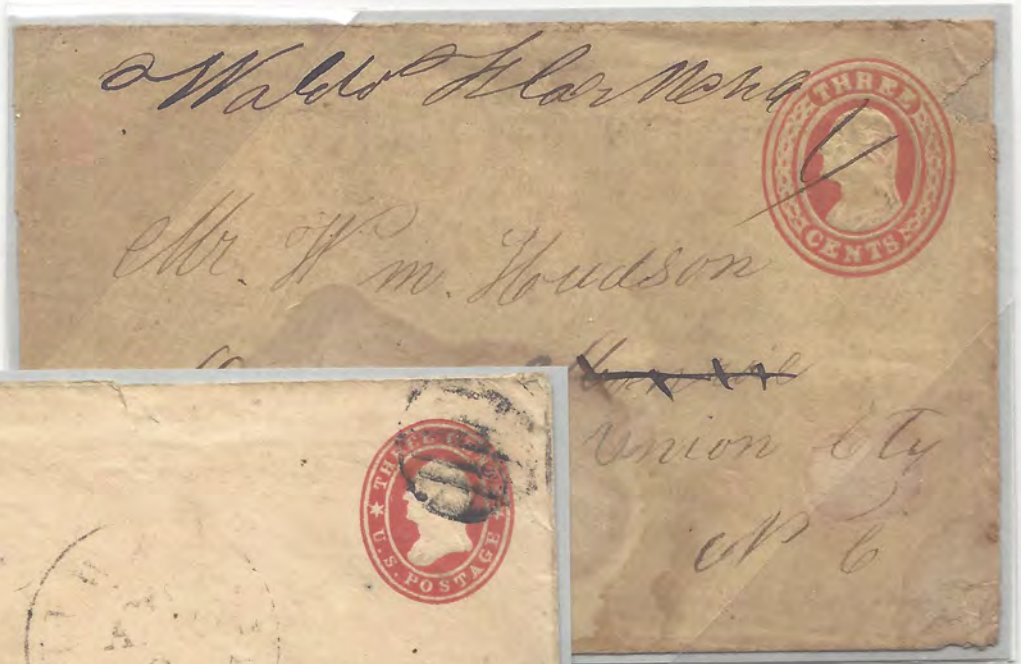 Waldo Fla
THREE CENTS
Mr. Wm. Hudson
Union Cty
N C
THREE CENTS
U.S. POSTAGE